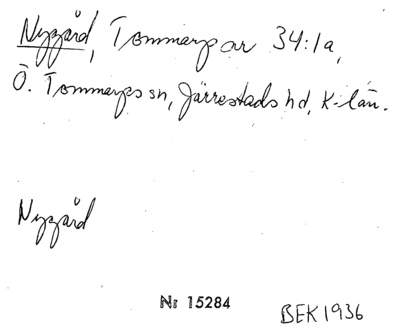 Nygård, Tommarp nr 34:1a,
Ö. Tommarps sn, Järrestads hd, K-län.
Nygård
Nr 15284
BEK 1936